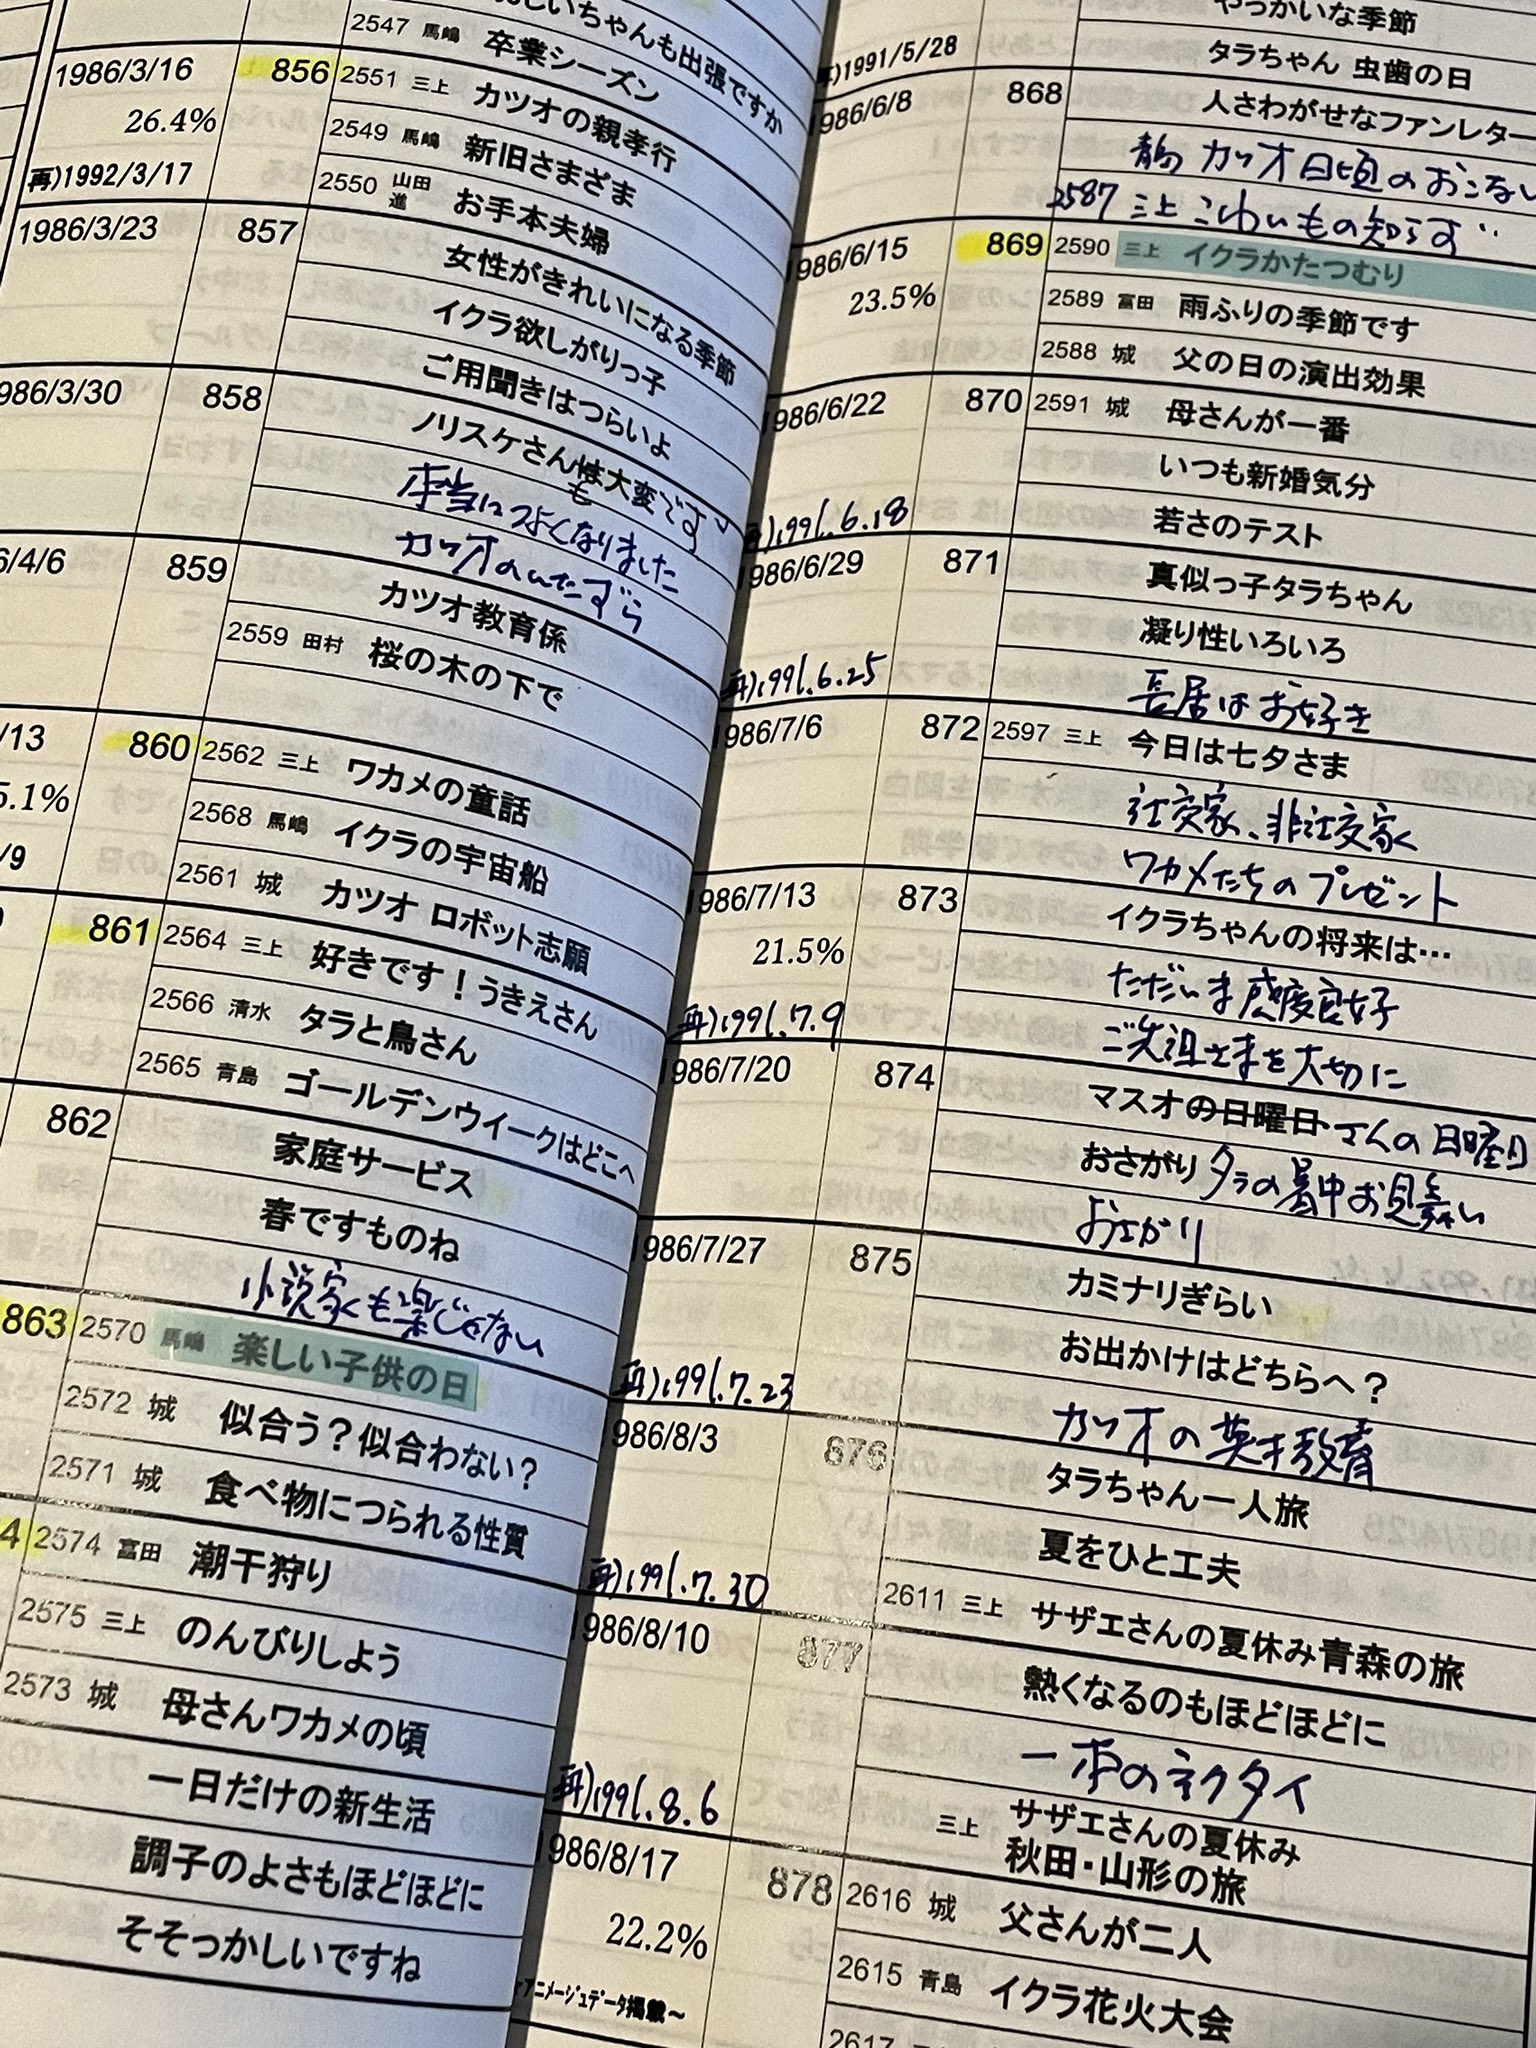 おしいちゃんも出張ですか
2547 馬嶋 卒業シーズン
1986/3/16 856 2551 三上 カツオの親孝行
26.4% 2549 馬嶋 新旧さまざま
再)1992/3/17 2550 山田進 お手本夫婦
1986/3/23 857 女性がきれいになる季節
イクラ欲しがりっ子
ご用聞きはつらいよ
986/3/30 858 ノリスケさんは大変です
も
本当につよくなりました
カツオのいたずら
6/4/6 859 カツオ教育係
2559 田村 桜の木の下で
/13 860 2562 三上 ワカメの童話
5.1% 2568 馬嶋 イクラの宇宙船
/9 2561 城 カツオ ロボット志願
861 2564 三上 好きです!うきえさん
2566 清水 タラと鳥さん
2565 青島 ゴールデンウイークはどこへ
862 家庭サービス
春ですものね
小説家も楽じゃない
863 2570 馬嶋 楽しい子供の日
2572 城 似合う?似合わない?
2571 城 食べ物につられる性質
4 2574 冨田 潮干狩り
2575 三上 のんびりしよう
2573 城 母さんワカメの頃
一日だけの新生活
調子のよさもほどほどに
そそっかしいですね
やっかいな季節
再)1991/5/28 タラちゃん 虫歯の日
1986/6/8 868 人さわがせなファンレター
青島 カツオ日頃のおこない
2587 三上 こわいもの知らず
1986/6/15 869 2590 三上 イクラかたつむり
23.5% 2589 冨田 雨ふりの季節です
2588 城 父の日の演出効果
1986/6/22 870 2591 城 母さんが一番
いつも新婚気分
再)1991.6.18 若さのテスト
1986/6/29 871 真似っ子タラちゃん
凝り性いろいろ
再)1991.6.25 長居はお好き
1986/7/6 872 2597 三上 今日は七夕さま
社交家、非社交家
ワカメたちのプレゼント
1986/7/13 873 イクラちゃんの将来は…
21.5% ただいま感度良好
再)1991.7.9 ご先祖さまを大切に
1986/7/20 874 マスオの日曜日 さんの日曜日
おさがり タラの暑中お見舞い
おさがり
1986/7/27 875 カミナリぎらい
お出かけはどちらへ?
再)1991.7.23 カツオの英才教育
1986/8/3 876 タラちゃん一人旅
夏をひと工夫
再)1991.7.30 2611 三上 サザエさんの夏休み青森の旅
1986/8/10 877 熱くなるのもほどほどに
一本のネクタイ
再)1991.8.6 三上 サザエさんの夏休み
秋田・山形の旅
1986/8/17 878 2616 城 父さんが二人
22.2% 2615 青島 イクラ花火大会
アニメージュデータ掲載～
2617